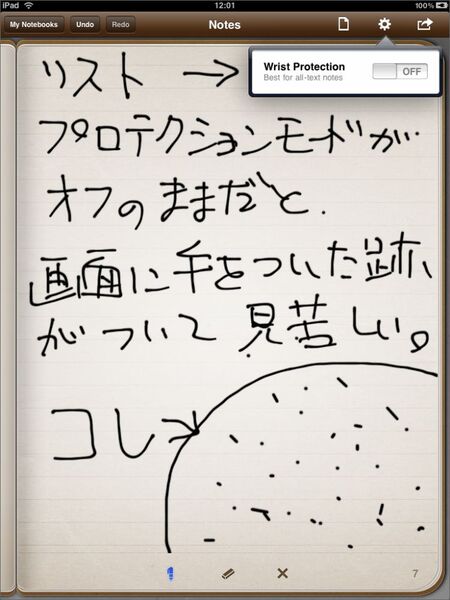 iPad 12:01 100%
My Notebooks Undo Redo Notes
Wrist Protection OFF
Best for all-text notes
リスト →
プロテクションモードが
オフのままだと.
画面に手をついた跡、
がついて見苦しい。
コレ→
7